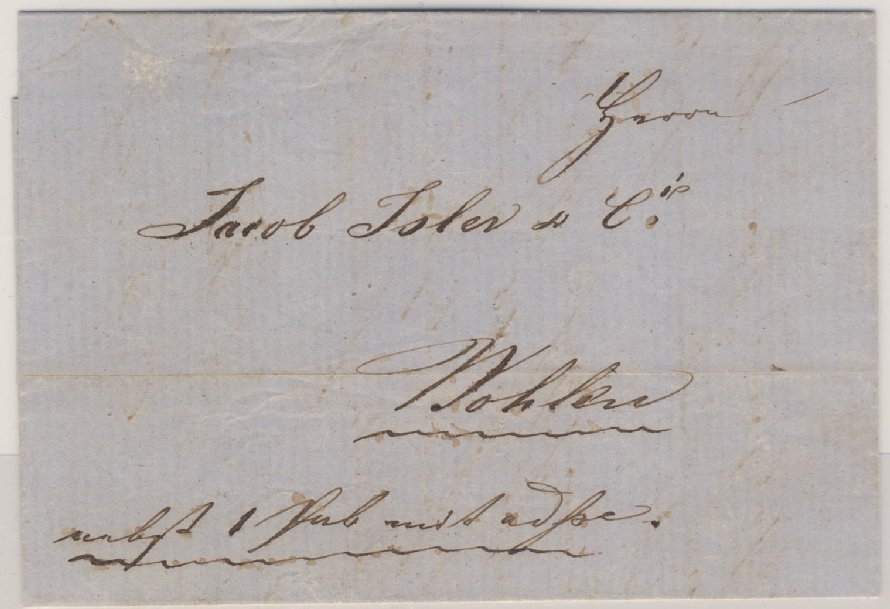 Herrn
Jacob Isler & Cie
Wohlen
nebst 1 mit adße.